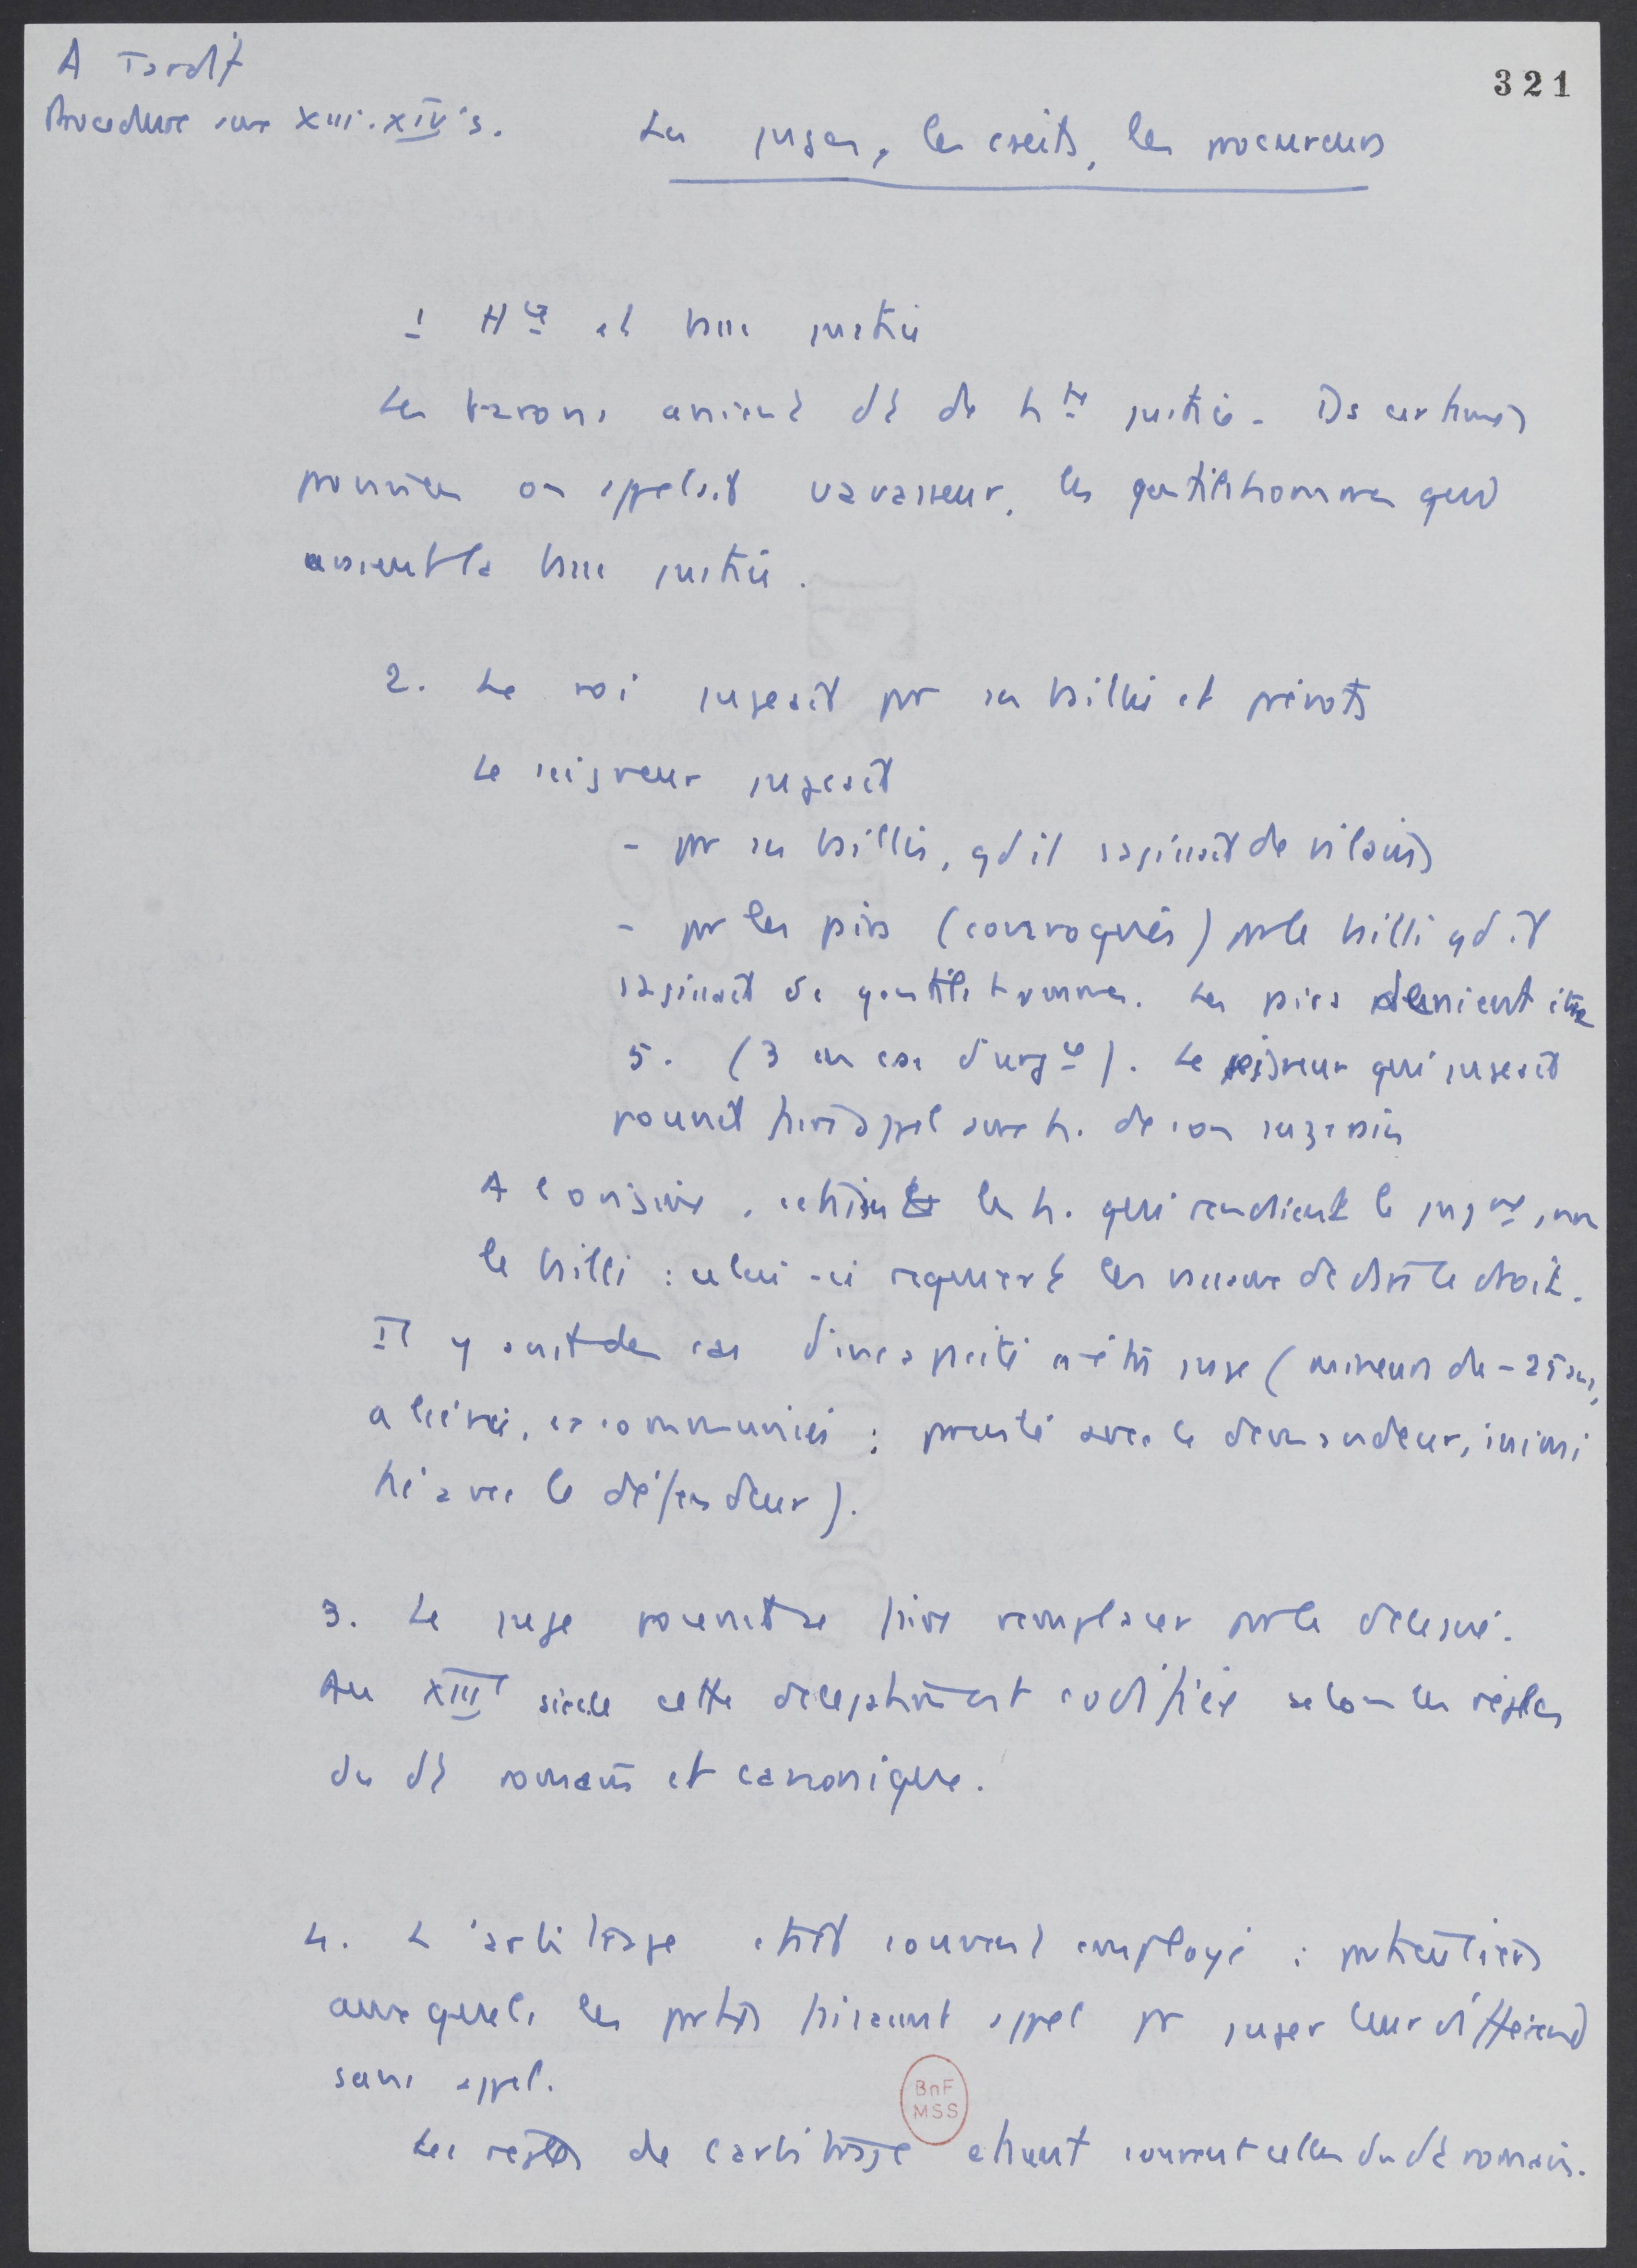 A Tardif
Procédure aux XIII.XIVe s.
321
Les juges, les écrits, les procureurs
1 Hte et basse justice
Les barons avaient dt de hte justice. Ds certaines
provinces on appelait vavasseur, les gentilshommes qui
avaient la basse justice.
2. Le roi jugeait par ses baillis et prévots
Le seigneur jugeait
- par ses baillis, qd il s'agissait de vilains
- par les pairs (convoqués) par le bailli qd il
s'agissait de gentilshommes. Les pairs devaient être
5. (3 en cas d'urgce). Le seigneur qui jugeait
pouvait faire appel aux h. de son suzerain
A l'origine, c'étaient les h. qui rendaient le jugmt, non
le bailli : celui-ci requiert les vassaux de dire le droit.
Il y avait des cas d'incapacité à être juge (mineurs de - 25 ans,
aliénés, excommuniés ; parenté avec le demandeur, inimi
tié avec le défendeur).
3. Le juge pouvait se faire remplacer par le délégué.
Au XIIIe siècle cette délégation est codifiée selon les règles
du dt romain et canonique.
4. L'arbitrage était souvent employé : particuliers
auxquels les parties faisaient appel pr juger leur différend
sans appel.
Les règles de l'arbitrage étaient souvent celles du dt romain.
BnF
MSS